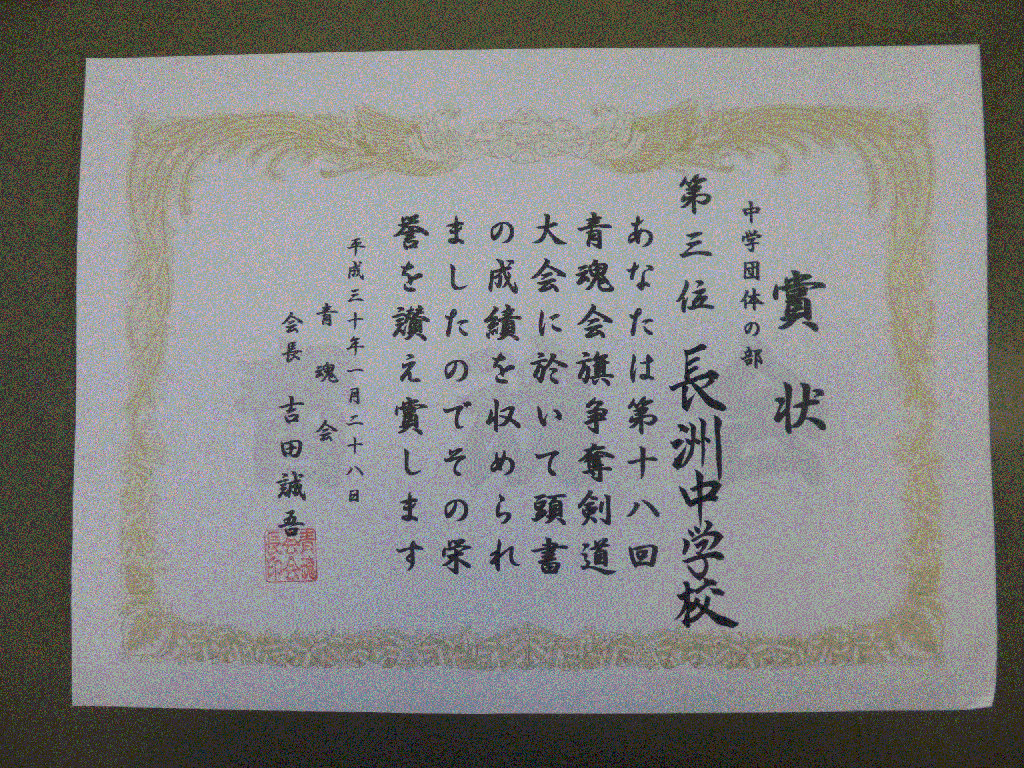 賞状
中学団体の部
第三位 長洲中学校
あなたは第十八回
青魂会旗争奪剣道
大会に於いて頭書
の成績を収められ
ましたのでその栄
誉を讃え賞します
平成三十年一月二十八日
青魂会
会長 吉田誠吾